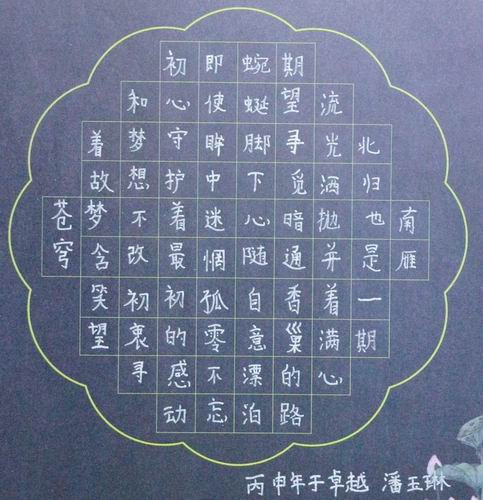 南雁
北归也是一期
流光洒抛并着满心
期望寻觅暗通香巢的路
蜿蜒脚下心随自意漂泊
即使眸中迷惘孤零不忘
初心守护着最初的感动
和梦想不改初衷寻
着故梦含笑望
苍穹
丙申年于卓越 潘玉琳